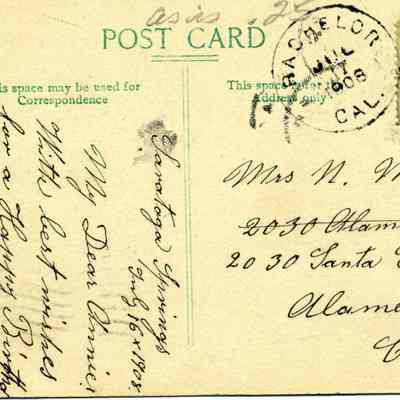 as is .25
POST CARD
is space may be used for
Correspondence
This space
Address only.
BACHELOR
JUL
17
1908
CAL.
Saratoga Springs
July 16 x 1908.
My Dear Annie,
With best wishes
for a Happy Birthd
Mrs N. M
2030 Alame
2030 Santa
Alame
C